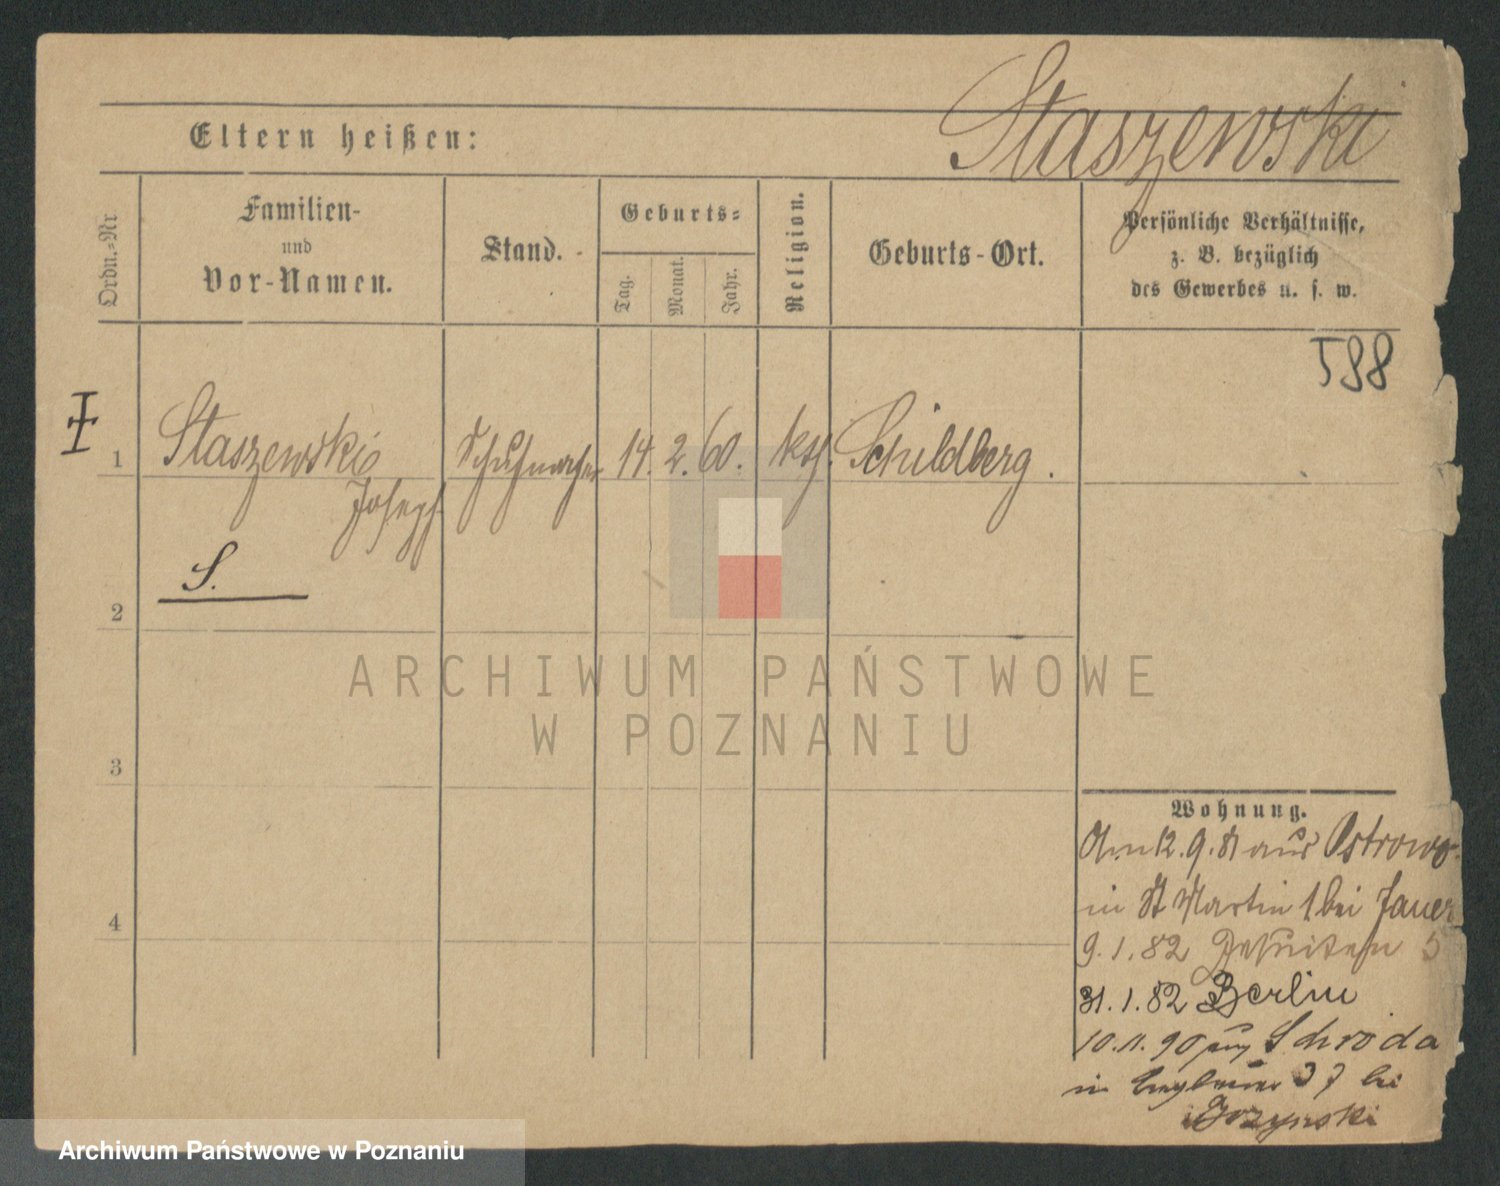 Staszewski
Eltern heißen:
Ordn.-Nr
Familien-
und
Vor-Namen.
Stand.
Geburts-
Tag.
Monat.
Jahr.
Religion.
Geburts-Ort.
Persönliche Verhältnisse,
z. B. bezüglich
des Gewerbes u. s. w.
588
1 Staszewski Schuhmacher 14. 2. 60. kth. Schildberg.
Joseph
S.
2
3
4
ARCHIWUM PAŃSTWOWE
W POZNANIU
Wohnung.
Am 12. 9. 81 aus Ostrowo
in St Martin 1 bei Jauer
9. 1. 82 5
31. 1. 82 Berlin
10. 11. 90 Schroda
in 37 bei
Archiwum Państwowe w Poznaniu